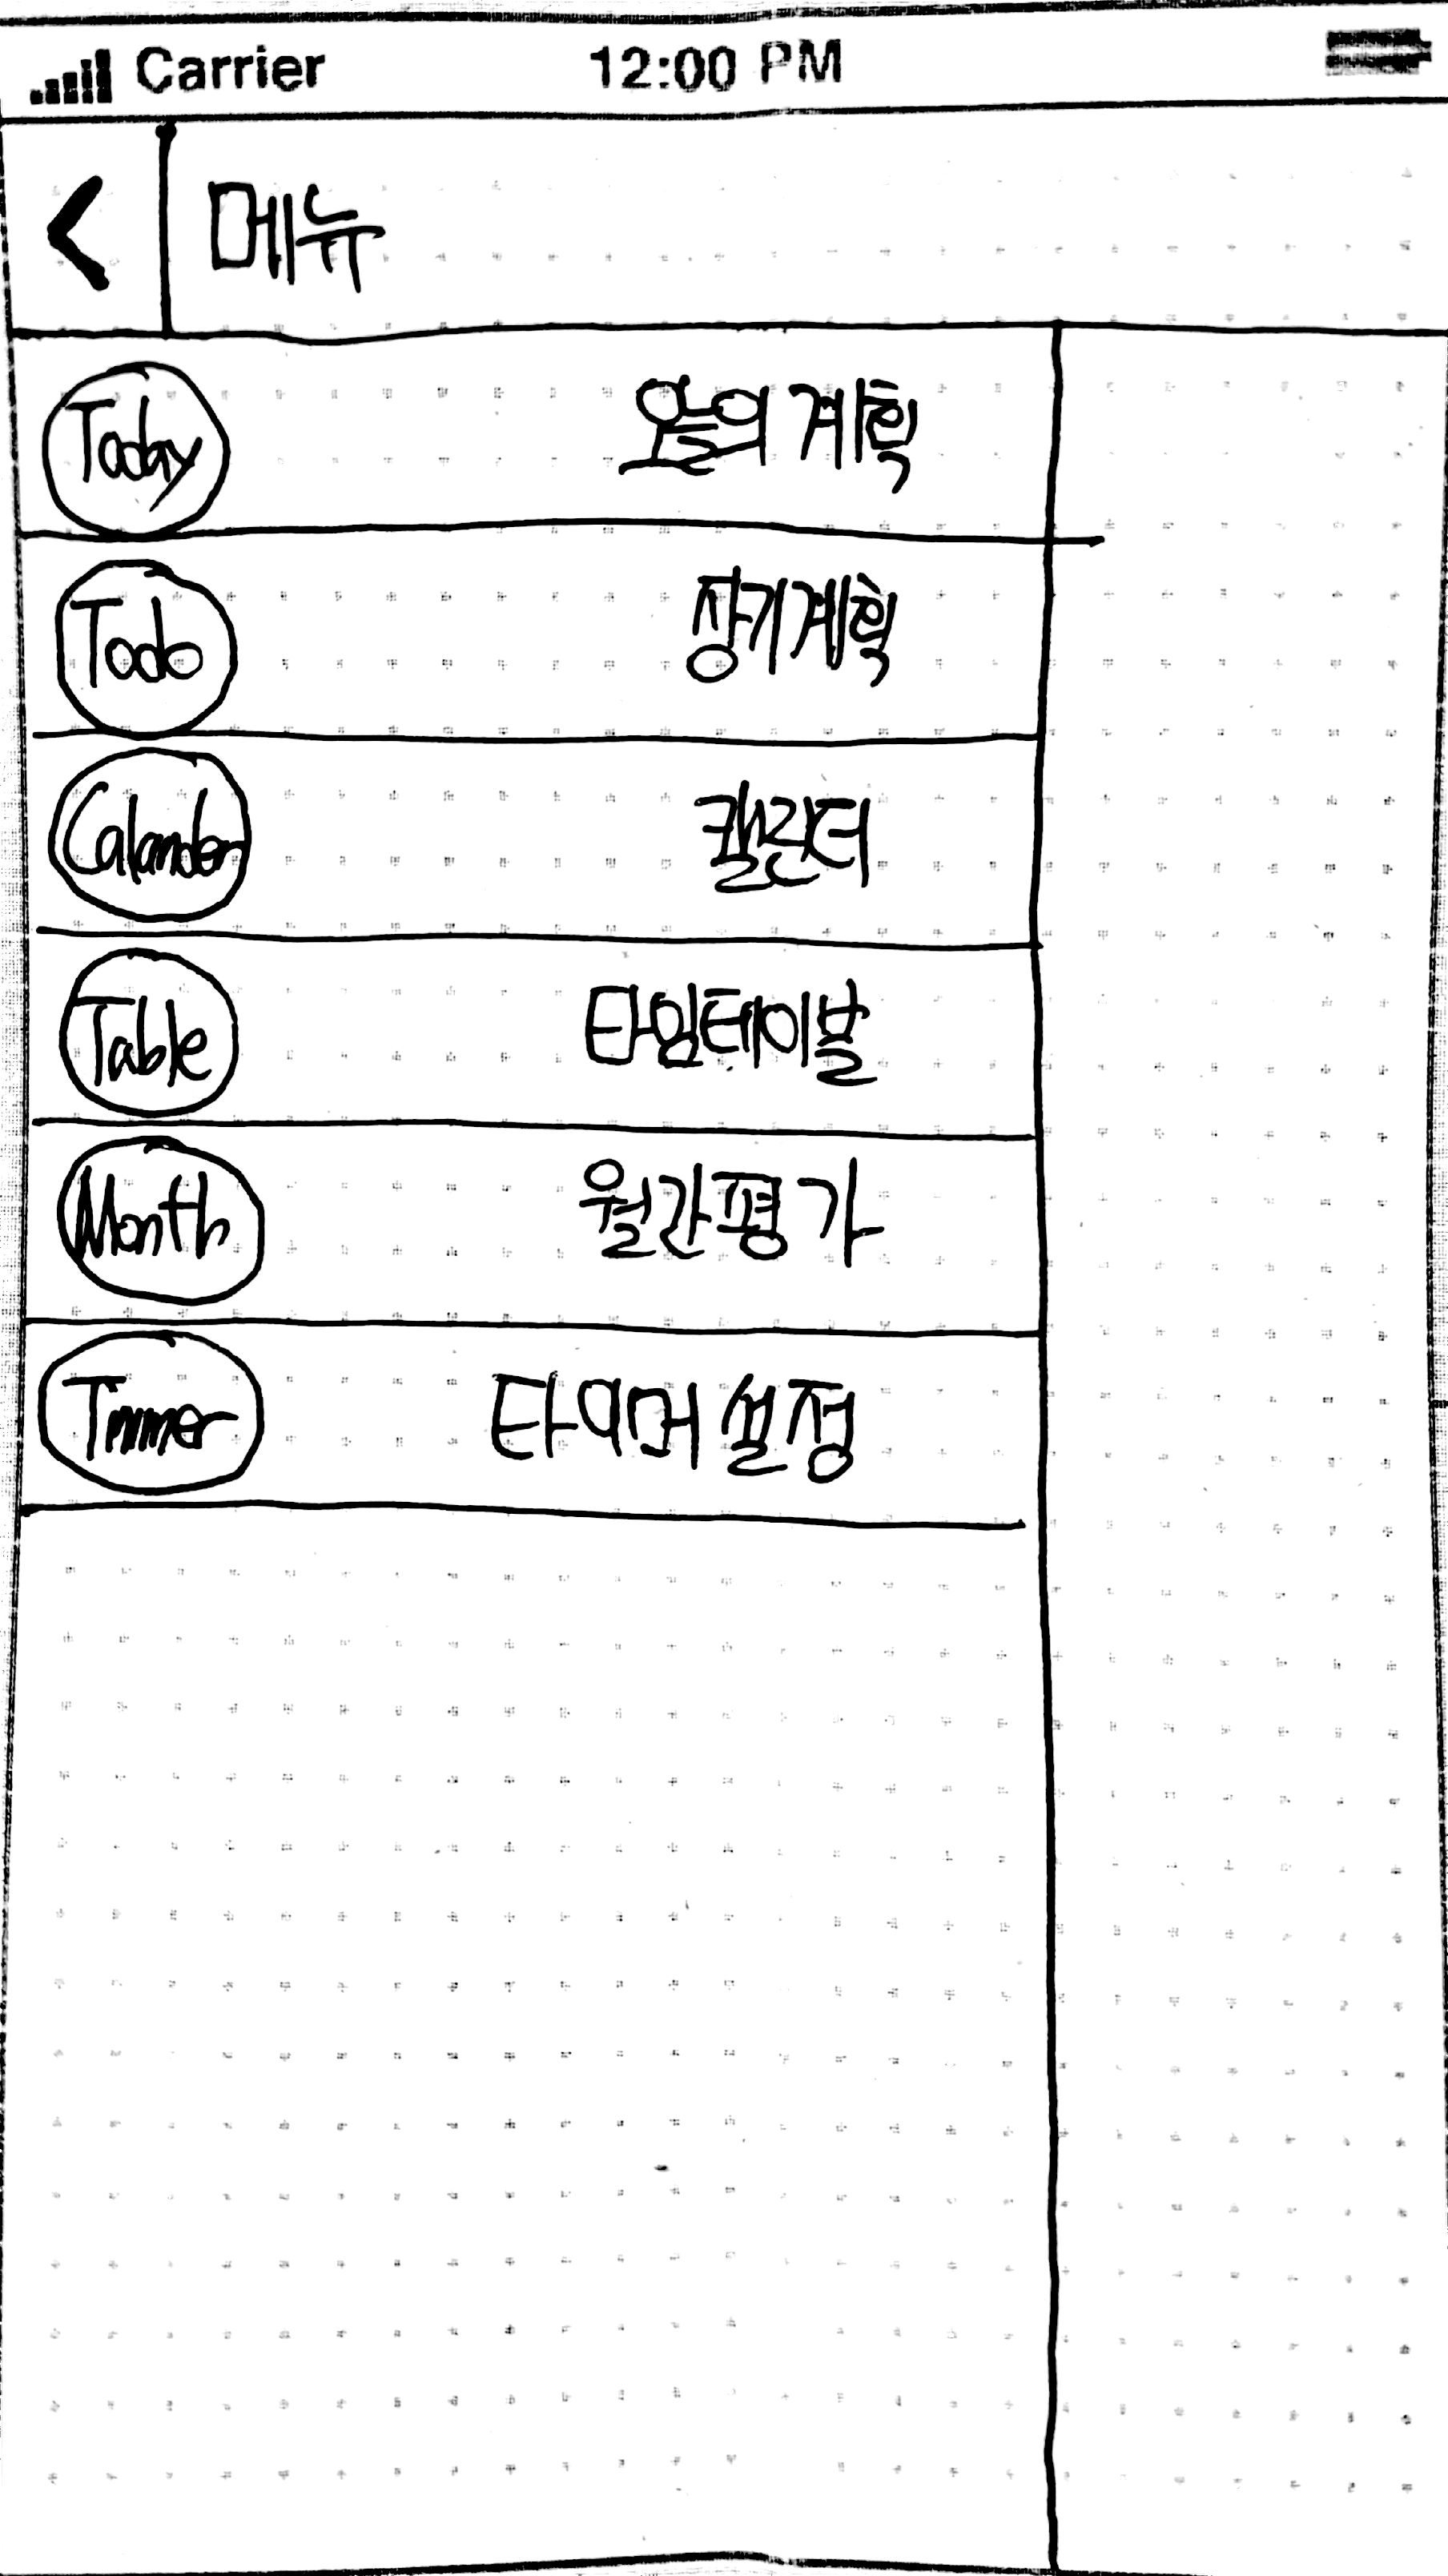 Carrier 12:00 PM
< 메뉴
Today 오늘의 계획
Todo 장기계획
Calander 캘린더
Table 타임테이블
Month 월간평가
Timmer 타이머 설정